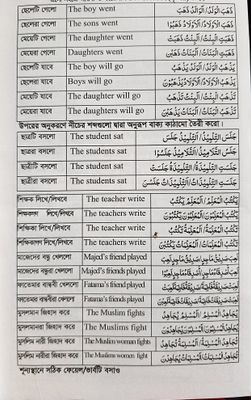 ছেলেটি গেলো The boy went ذَهَبَ الْوَلَدُ/ اَلْوَلَدُ ذَهَبَ
ছেলেরা গেলো The sons went ذَهَبَ الْاَوْلَادُ/ اَلْاَوْلَادُ ذَهَبُوْا
মেয়েটি গেলো The daughter went ذَهَبَتِ الْبِنْتُ/ اَلْبِنْتُ ذَهَبَتْ
মেয়েরা গেলো Daughters went ذَهَبَتِ الْبَنَاتُ/ اَلْبَنَاتُ ذَهَبْنَ
ছেলেটি যাবে The boy will go يَذْهَبُ الْوَلَدُ/ اَلْوَلَدُ يَذْهَبُ
ছেলেরা যাবে Boys will go يَذْهَبُ الْاَوْلَادُ/ اَلْاَوْلَادُ يَذْهَبُوْنَ
মেয়েটি যাবে The daughter will go تَذْهَبُ الْبِنْتُ/ اَلْبِنْتُ تَذْهَبُ
মেয়েরা যাবে The daughters will go تَذْهَبُ الْبَنَاتُ/ اَلْبَنَاتُ يَذْهَبْنَ
উপরের অনুকরণে নীচের শব্দগুলো দ্বারা অনুরূপ বাক্য কাঠামো তৈরী করো।
ছাত্রটি বসলো The student sat جَلَسَ التِّلْمِيْذُ/ اَلتِّلْمِيْذُ جَلَسَ
ছাত্ররা বসলো The student sat جَلَسَ التَّلَامِيْذُ/ اَلتَّلَامِيْذُ جَلَسُوْا
ছাত্রীটি বসলো The student sat جَلَسَتِ التِّلْمِيْذَةُ/ اَلتِّلْمِيْذَةُ جَلَسَتْ
ছাত্রীরা বসলো The student sat جَلَسَتِ التِّلْمِيْذَاتُ/ اَلتِّلْمِيْذَاتُ جَلَسْنَ
শিক্ষক লিখে/লিখবে The teacher write يَكْتُبُ الْمُعَلِّمُ/ اَلْمُعَلِّمُ يَكْتُبُ
শিক্ষকগণ লিখে/লিখবে The teachers write يَكْتُبُ الْمُعَلِّمُوْنَ/ اَلْمُعَلِّمُوْنَ يَكْتُبُوْنَ
শিক্ষিকা লিখে/লিখবে The teacher write تَكْتُبُ الْمُعَلِّمَةُ/ اَلْمُعَلِّمَةُ تَكْتُبُ
শিক্ষিকাগণ লিখে/লিখবে The teachers write تَكْتُبُ الْمُعَلِّمَاتُ/ اَلْمُعَلِّمَاتُ يَكْتُبْنَ
মাজেদের বন্ধু খেললো Majed's friend played
মাজেদের বন্ধুরা খেললো Majed's friends played
ফাতেমার বান্ধবী খেললো Fatama's friend played
ফাতেমার বান্ধবীরা খেললো Fatama's friends played
মুসলমান জিহাদ করে The Muslim fights يُجَاهِدُ الْمُسْلِمُ/ اَلْمُسْلِمُ يُجَاهِدُ
মুসলমানরা জিহাদ করে The Muslims fight يُجَاهِدُ الْمُسْلِمُوْنَ/ اَلْمُسْلِمُوْنَ يُجَاهِدُوْنَ
মুসলিম নারী জিহাদ করে The Muslim woman fights تُجَاهِدُ الْمُسْلِمَةُ/ اَلْمُسْلِمَةُ تُجَاهِدُ
মুসলিম নারীরা জিহাদ করে The Muslim women fight تُجَاهِدُ الْمُسْلِمَاتُ/ اَلْمُسْلِمَاتُ يُجَاهِدْنَ
শূন্যস্থানে সঠিক ফেয়েল/ভার্বটি বসাও